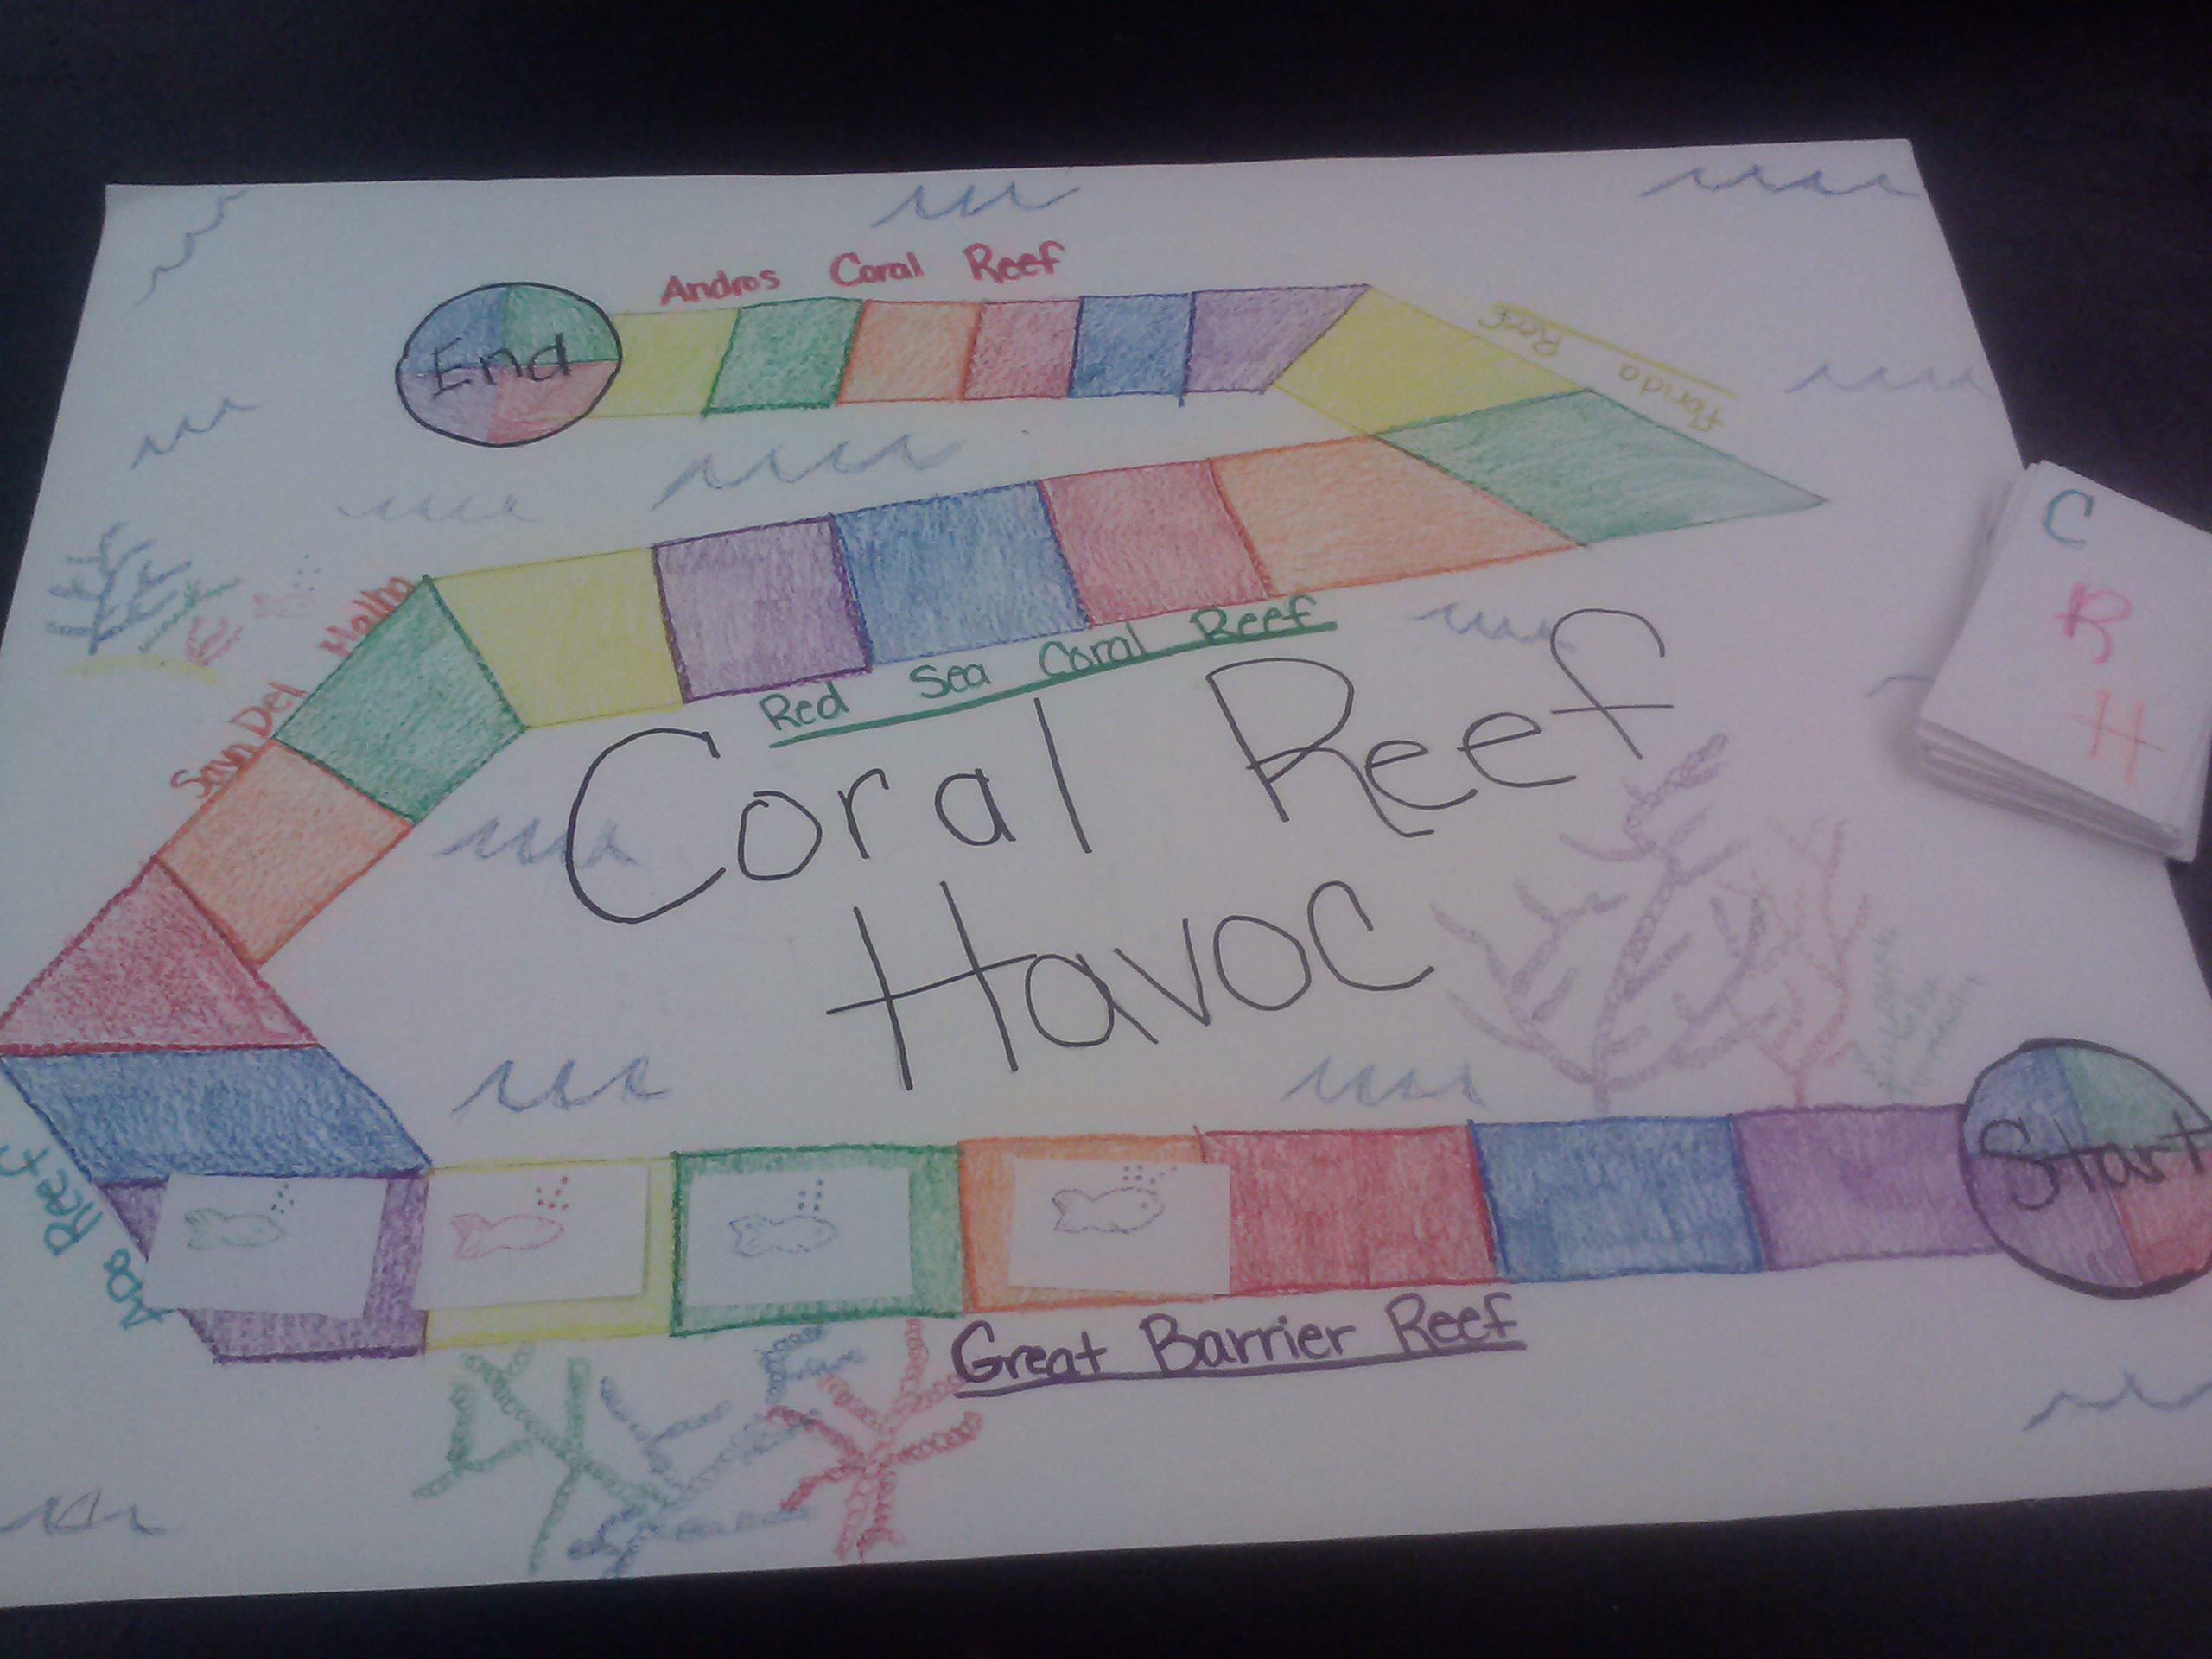 Andros Coral Reef
End
Florida Reef
C
R
H
Saya Del Malha
Red Sea Coral Reef
Coral Reef
Havoc
Start
Apo Reef
Great Barrier Reef